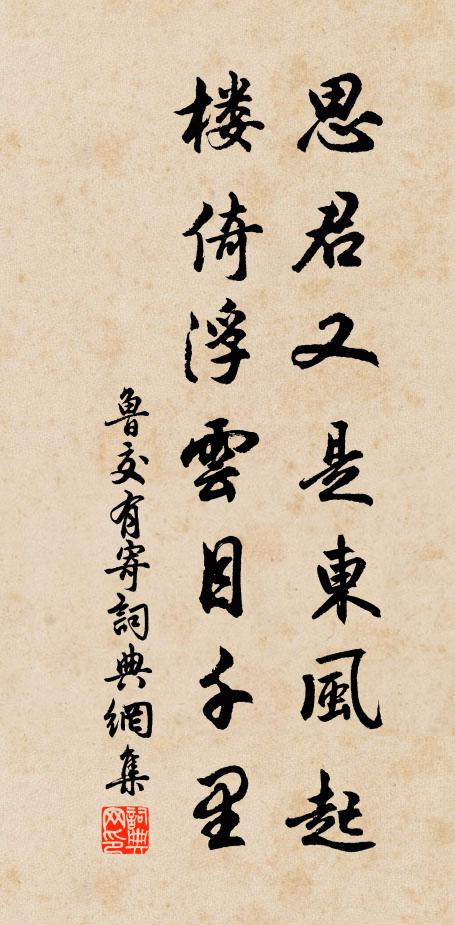 思君又是東風起
楼倚浮雲目千里
魯交有寄詞典網集
詞典網印